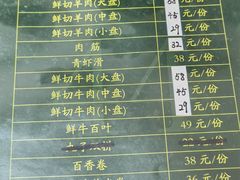 鲜切羊肉(大盘) 元/份
鲜切羊肉(中盘) 45 元/份
鲜切羊肉(小盘) 29 元/份
肉筋 32 元/份
青虾滑 38 元/份
鲜切牛肉(大盘) 58 元/份
鲜切牛肉(中盘) 45 元/份
鲜切牛肉(小盘) 29 元/份
鲜牛百叶 49 元/份
元/份
百香卷 38 元/份
元/份